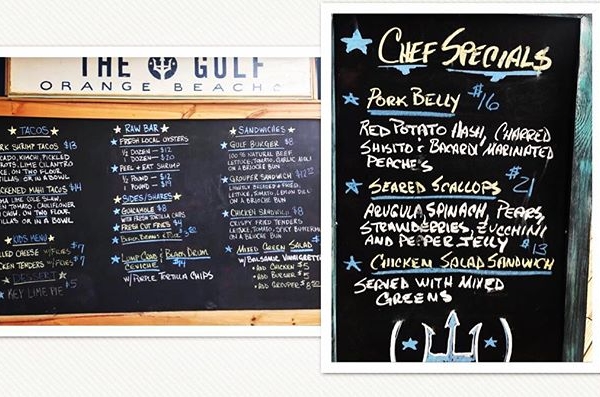 THE GULF
ORANGE BEACH
TACOS
SHRIMP TACOS $13
KIMCHI, PICKLED
LIME CILANTRO
ON TWO FLOUR
OR IN A BOWL
MAHI TACOS $14
LIME COLE SLAW,
TOMATO, CAULIFLOWER
ON TWO FLOUR
OR IN A BOWL
KIDS MENU
CHEESE W/FRIES $7
TENDERS W/FRIES $7
DESSERT
KEY LIME PIE $5
RAW BAR
FRESH LOCAL OYSTERS
½ DOZEN - $12
DOZEN - $20
PEEL + EAT SHRIMP
½ POUND - $12
1 POUND - $19
SIDES/SHARES
GUACAMOLE $8
WITH FRESH TORTILLA CHIPS
FRESH CUT FRIES
BLACK BEANS + RICE
LUMP CRAB & BLACK DRUM
CEVICHE $14
W/ PURPLE TORTILLA CHIPS
SANDWICHES
GULF BURGER $8
100% NATURAL BEEF,
LETTUCE, TOMATO, GARLIC AIOLI
ON A BRIOCHE BUN
GROUPER SANDWICH
LETTUCE, TOMATO, LEMON DILL
ON A BRIOCHE BUN
CHICKEN SANDWICH $8
CRISPY FRIED TENDERS
LETTUCE, TOMATO, SPICY BUTTERMILK
ON A BRIOCHE BUN
MIXED GREEN SALAD
W/ BALSAMIC VINAIGRETTE
ADD CHICKEN $5
ADD BURGER $5
ADD GROUPER
CHEF SPECIALS
PORK BELLY $16
RED POTATO HASH, CHARRED
SHISITO & BACARDI MARINATED
PEACHES
SEARED SCALLOPS $21
ARUGULA, SPINACH, PEARS,
STRAWBERRIES, ZUCCHINI,
AND PEPPER JELLY $13
CHICKEN SALAD SANDWICH
SERVED WITH MIXED
GREENS